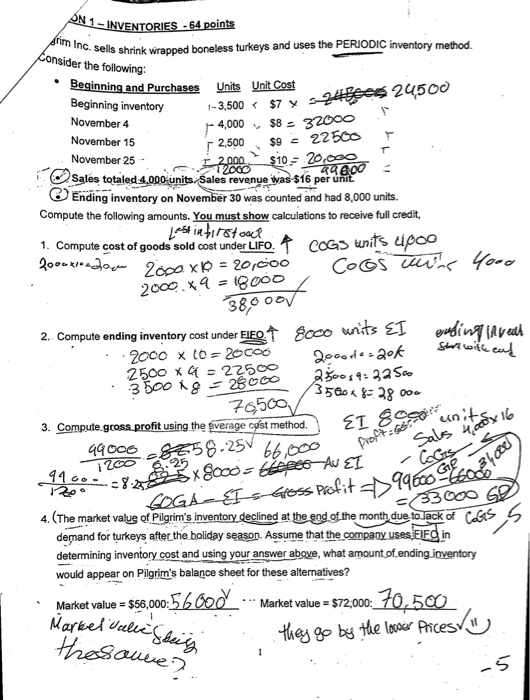 ON 1 – INVENTORIES - 64 points
grim Inc. sells shrink wrapped boneless turkeys and uses the PERIODIC inventory method.
Consider the following:
• Beginning and Purchases Units Unit Cost
Beginning inventory 3,500 $7 x = 24,500
November 4 4,000 $8 = 32000
November 15 2,500 $9 = 22500
November 25 2,000 $10 = 20,000
12000 99000
Sales totaled 4,000 units. Sales revenue was $16 per unit.
Ending inventory on November 30 was counted and had 8,000 units.
Compute the following amounts. You must show calculations to receive full credit,
Last in first out
1. Compute cost of goods sold cost under LIFO. ↑ COGS units 4000
2000 x 10 = 20,000
COGS 4000
2000 x 9 = 18000
38,000 √
2. Compute ending inventory cost under FIFO ↑ 8000 units EI
2000 x 10 = 20000
2500 x 9 = 22500
3500 x 8 = 28000
70,500
ending invent
start with end
2000 10 = 20k
2500 x 9 = 22500
3500 x 8 = 28 000
3. Compute gross profit using the average cost method.
EI 8000 units
Sales 4,000 x 16
- COGS
GP
99000 = 8.25 √ 66,000
1200
8.25 x 8000 = AV EI
COGA - EI = Gross Profit => 99000 - 66000
= 33000 GP
COGS
4. (The market value of Pilgrim's inventory declined at the end of the month due to lack of
demand for turkeys after the holiday season. Assume that the company uses FIFO in
determining inventory cost and using your answer above, what amount of ending inventory
would appear on Pilgrim's balance sheet for these alternatives?
Market value = $56,000: 56000 √ Market value = $72,000: 70,500
Market value
they go by the lower Prices √
-5